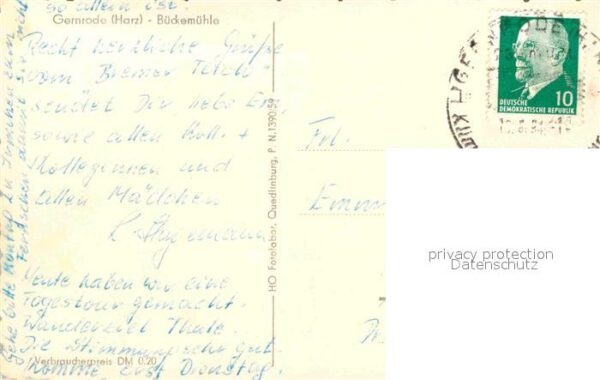 so allein ist.
Gernrode (Harz) - Bückemühle
Recht herzliche Grüße
vom Bremer
sendet Dir liebe
sowie allen Koll. +
Kolleginnen und
allen Mädchen
Heute haben wir eine
Tagestour gemacht.
Wanderziel Thale.
Die Stimmung sehr gut.
Komme erst Dienstag.
Verbraucherpreis DM 0.20
Gehe bitte Montag zu
Fernsehen damit sie nicht
HO Fotolabor, Quedlinburg, P. N.1390/59
DEUTSCHE
DEMOKRATISCHE REPUBLIK
10
Frl.
privacy protection
Datenschutz